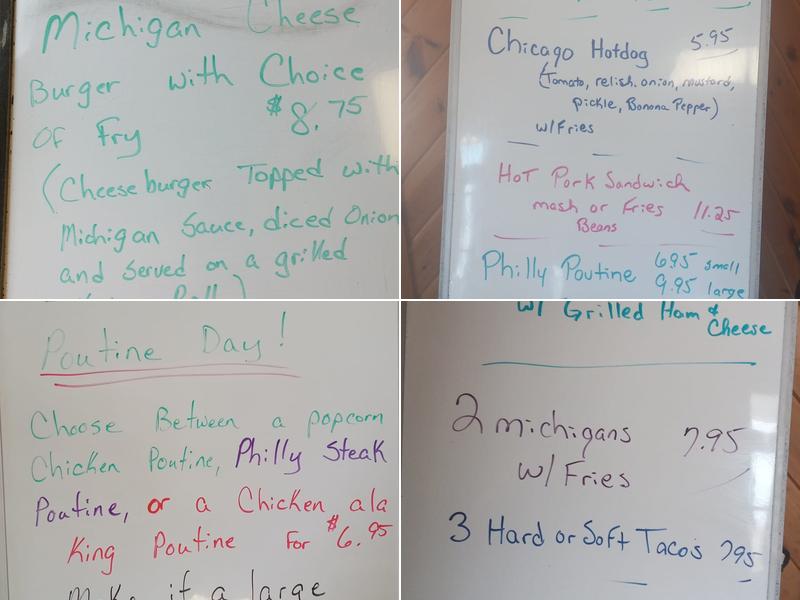 Michigan Cheese
Burger with Choice
of Fry $8.75
(Cheeseburger Topped with
Michigan Sauce, diced Onion
and served on a grilled
Roll)
Chicago Hotdog 5.95
(Tomato, relish, onion, mustard,
pickle, Banana Pepper)
w/Fries
Hot Pork Sandwich
mash or Fries 11.25
Beans
Philly Poutine 6.95 small
9.95 large
Poutine Day!
Choose Between a popcorn
Chicken Poutine, Philly Steak
Poutine, or a Chicken ala
King Poutine For $6.95
Make it a large
w/ Grilled Ham &
Cheese
2 michigans 7.95
w/ Fries
3 Hard or Soft Tacos 7.95